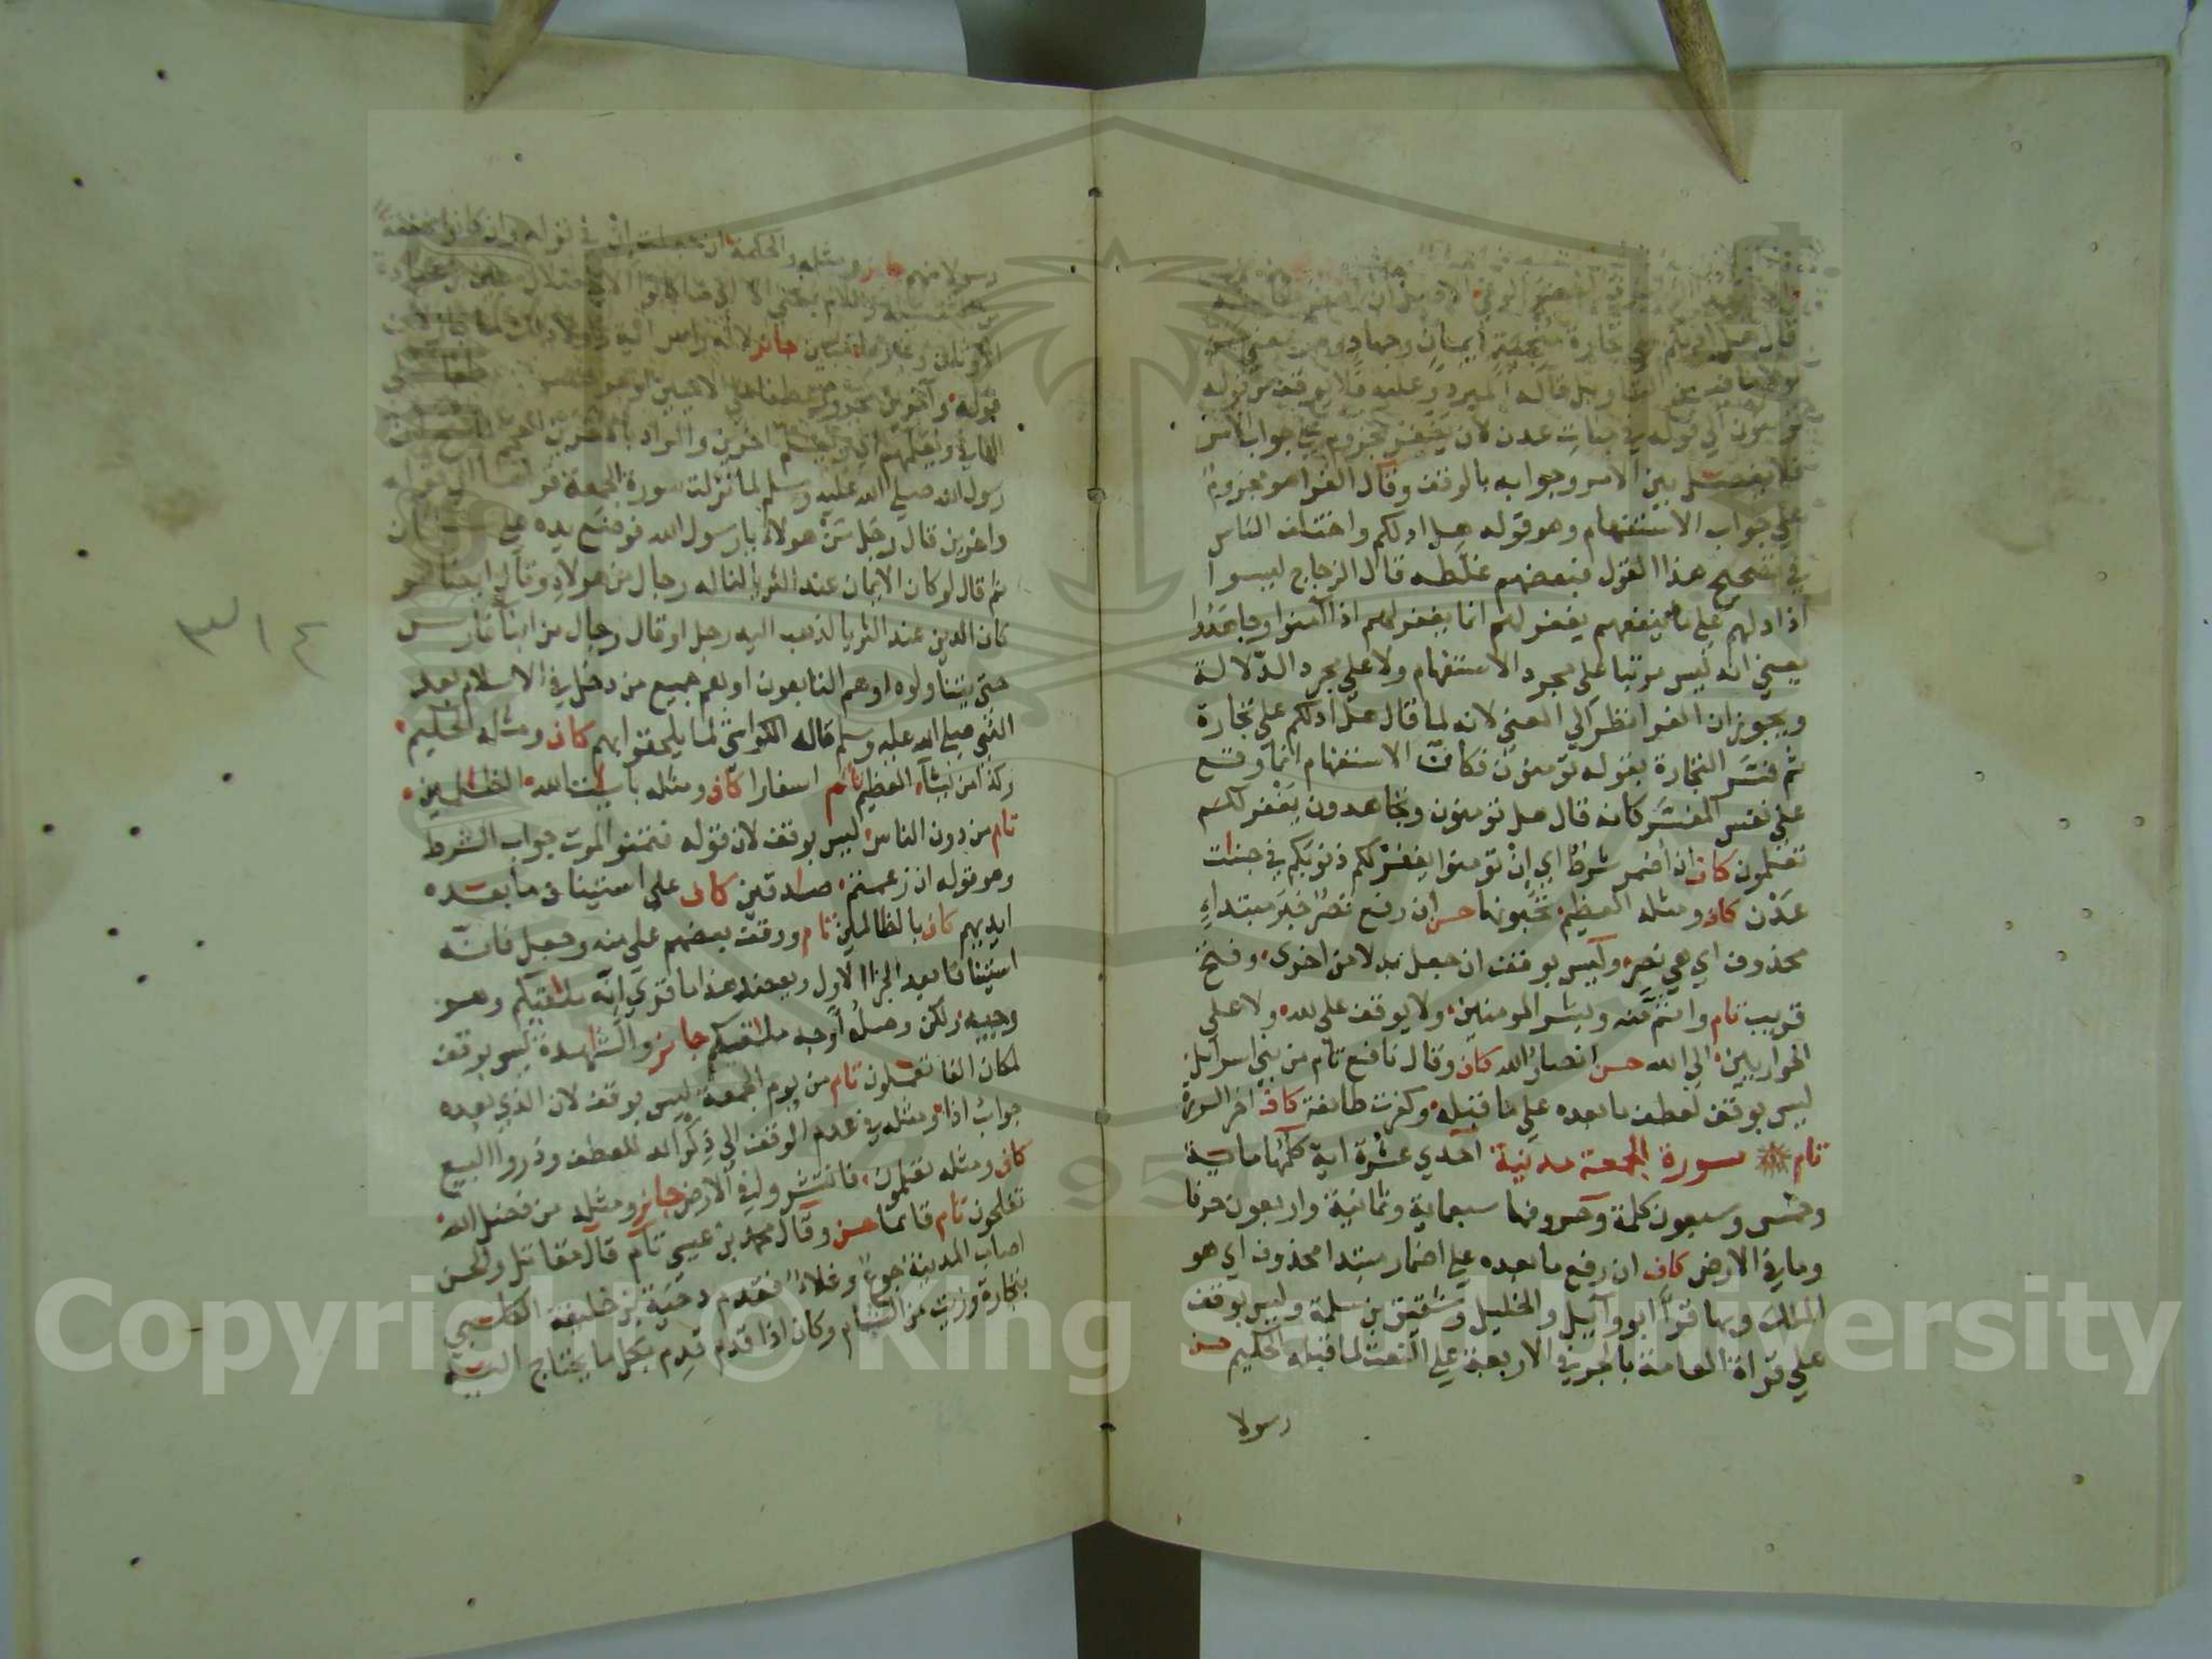 قال هل ادلكم على تجارة منجية ايمان وجهاد وهو معنى حسن
قاله المبرد وعليه فلا يوقف من قوله
تؤمنون الى قوله في جنات عدن لان يغفر مجزوم على جواب الامر
فلا يفصل بين الامر وجوابه بالوقف وقال الفرا هو مجزوم
على جواب الاستفهام وهو قوله هل ادلكم واختلف الناس
في تصحيح هذا القول فبعضهم غلطه قال الزجاج ليسوا
اذا دلهم على ما ينفعهم يغفر لهم انما يغفر لهم اذا آمنوا وجاهدوا
يعني انه ليس مرتبا على مجرد الاستفهام ولا على مجرد الدلالة
ويجوز ان الفرا نظر الي المعنى لانه لما قال هل ادلكم على تجارة
ثم فسر التجارة بقوله تؤمنون فكان الاستفهام انما وقع
على نفس المفسر كانه قال هل تؤمنون وتجاهدون يغفر لكم
تعلمون كاف ان اضمر شرط اي ان تؤمنوا يغفر لكم ذنوبكم في جنات
عدن كاف ومثله العظيم تحبونها حسن ان رفع نصر خبر مبتداء
محذوف اي هي نصر وليس بوقف ان جعل بدلا من اخرى وفتح
قريب تام وانتم منه وبشر المومنين ولا يوقف على لله ولا على
الحواريين الى الله حسن انصار الله كاف وقال نافع تام من بني اسرائيل
ليس بوقف لعطف ما بعده على ما قبله وكفرت طائفة كاف اخر السورة
تام سورة الجمعة مدنية احدي عشرة اية كلمها ماية
وخمس وسبعون كلمة وحروفها سبعماية وثمانية واربعون حرفا
وما في الارض كاف ان رفع ما بعده على اضمار مبتدا محذوف اي هو
الملك وبها قرأ ابو وآيل والخليل وشقيق بن سلمة وليس بوقف
على قراة العامة بالجر في الاربعة على النعت لما قبله الحكيم حسن
رسولا
رسولا منهم جائز ومثله والحكمة ان جعلت ان في قوله وان كانوا مخففة
من الثقيلة واللام بمعنى الا
جائز
قوله وآخرين مجرور عطفا على الاميين
ويعلم آخرين والمراد بالآخرين العجم
رسول الله صلى الله عليه وسلم لما نزلت سورة الجمعة
واخرين قال رجل من هولاء يا رسول الله فوضع يده على
ثم قال لو كان الايمان عند الثريا لناله رجال من هولاء وقال ايضا لو
كان الدين عند الثريا لذهب اليه رجل او قال رجال من ابنا فارس
حتى يتناولوه او هم التابعون او هم جميع من دخل في الاسلام بعد
النبي صلى الله عليه وسلم قاله الكواشي لما يلحقوا بهم كاف ومثله الحكيم
وكذا من يشآء العظيم تام اسفارا كاف ومثله بايت الله الظلمين
تام من دون الناس ليس بوقف لان قوله فتمنوا الموت جواب الشرط
وهو قوله ان زعمتم صدقين كاف على استيناف ما بعده
ايديهم كاف بالظالمين تام ووقف بعضهم على منه وجعل فانه
استينافا بعد الجزا الاول ويعضد هذا ما قري انه ملاقيكم وهو
وجيه ولكن وصله اوجه ملاقيكم جائز والشهدة ليس بوقف
لمكان الفا تعملون تام من يوم الجمعة ليس بوقف لان الذي بعده
جواب اذا ومثله في عدم الوقف الى ذكر الله للعطف وذروا البيع
كاف ومثله تعلمون فانتشروا في الارض جائز ومثله من فضل الله
تفلحون تام قائما حسن وقال محمد بن عيسى تام قال مقاتل والحسن
اصاب المدينة جوع وغلاء فقدم دحية بن خليفة الكلبي
بتجارة وزيت من الشام وكان اذا قدم قدم بكل ما يحتاج اليه
٣١٤
Copyright © King Saud University